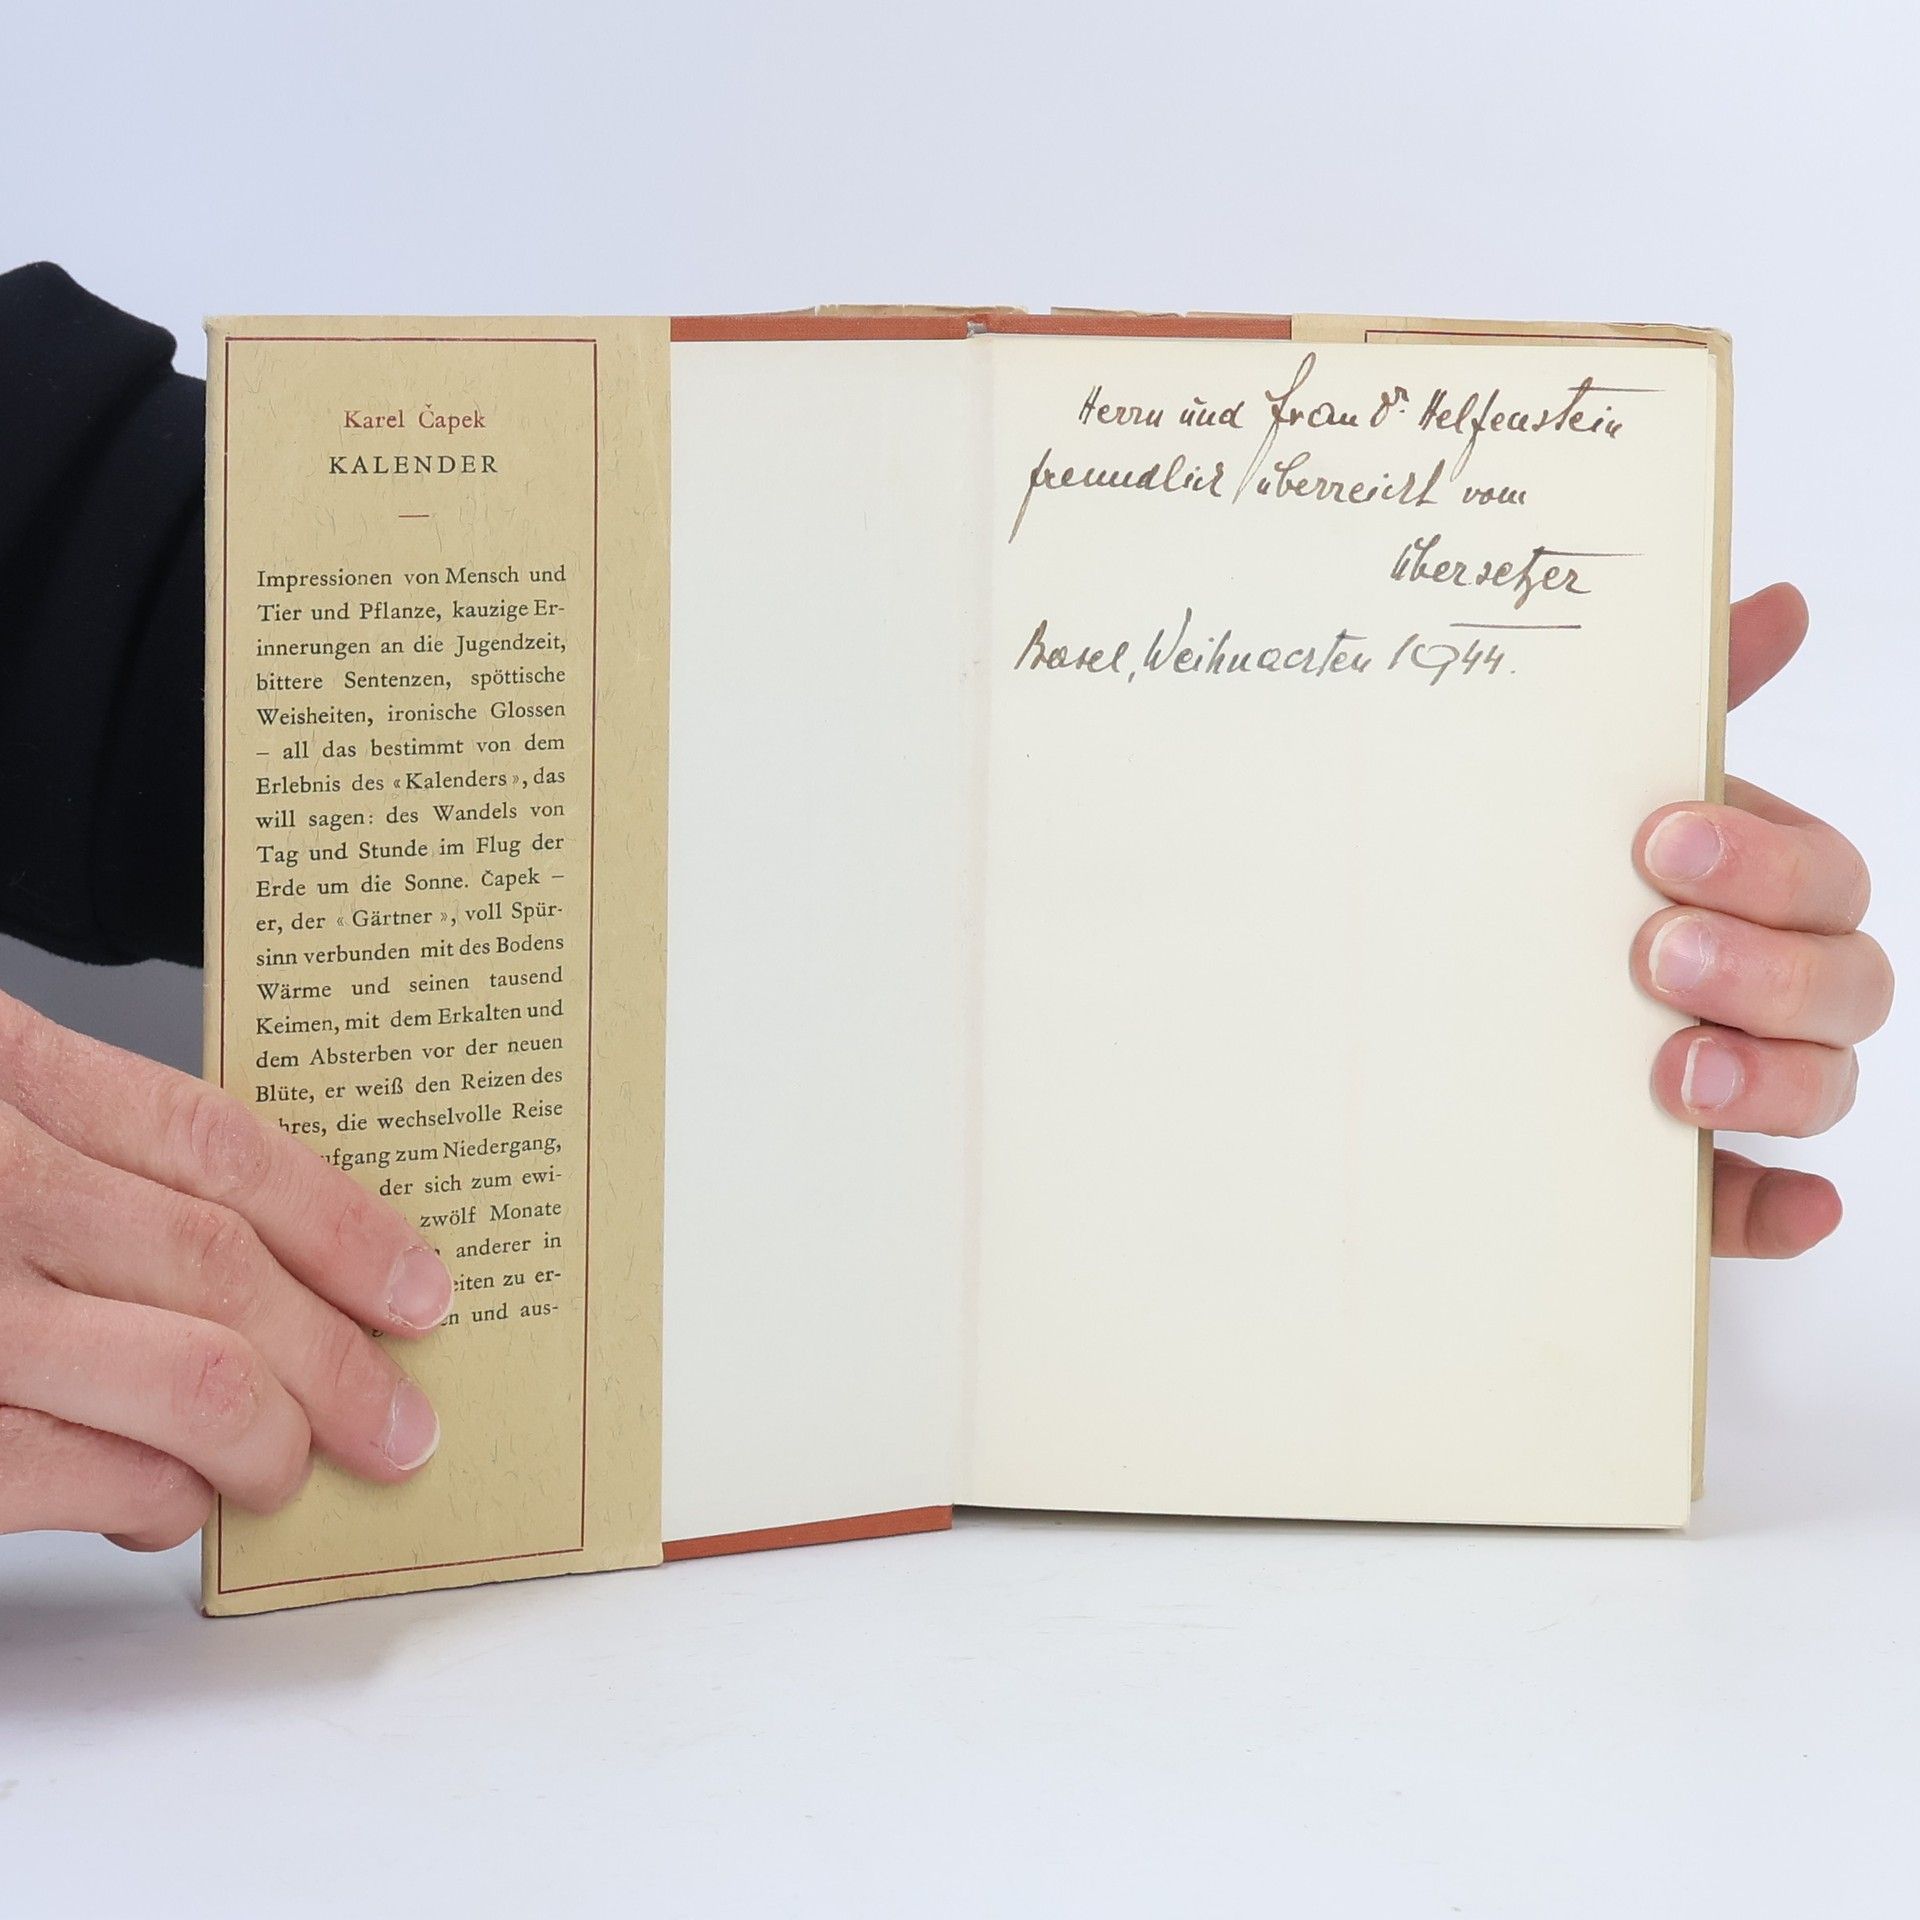 Karel Čapek
KALENDER
—
Impressionen von Mensch und
Tier und Pflanze, kauzige Er-
innerungen an die Jugendzeit,
bittere Sentenzen, spöttische
Weisheiten, ironische Glossen
– all das bestimmt von dem
Erlebnis des «Kalenders», das
will sagen: des Wandels von
Tag und Stunde im Flug der
Erde um die Sonne. Čapek –
er, der «Gärtner», voll Spür-
sinn verbunden mit des Bodens
Wärme und seinen tausend
Keimen, mit dem Erkalten und
dem Absterben vor der neuen
Blüte, er weiß den Reizen des
hres, die wechselvolle Reise
ufgang zum Niedergang,
der sich zum ewi-
zwölf Monate
anderer in
eiten zu er-
en und aus-
Herrn und Frau Dr. Helfenstein
freundlich überreicht vom
Übersetzer
Basel, Weihnachten 1944.